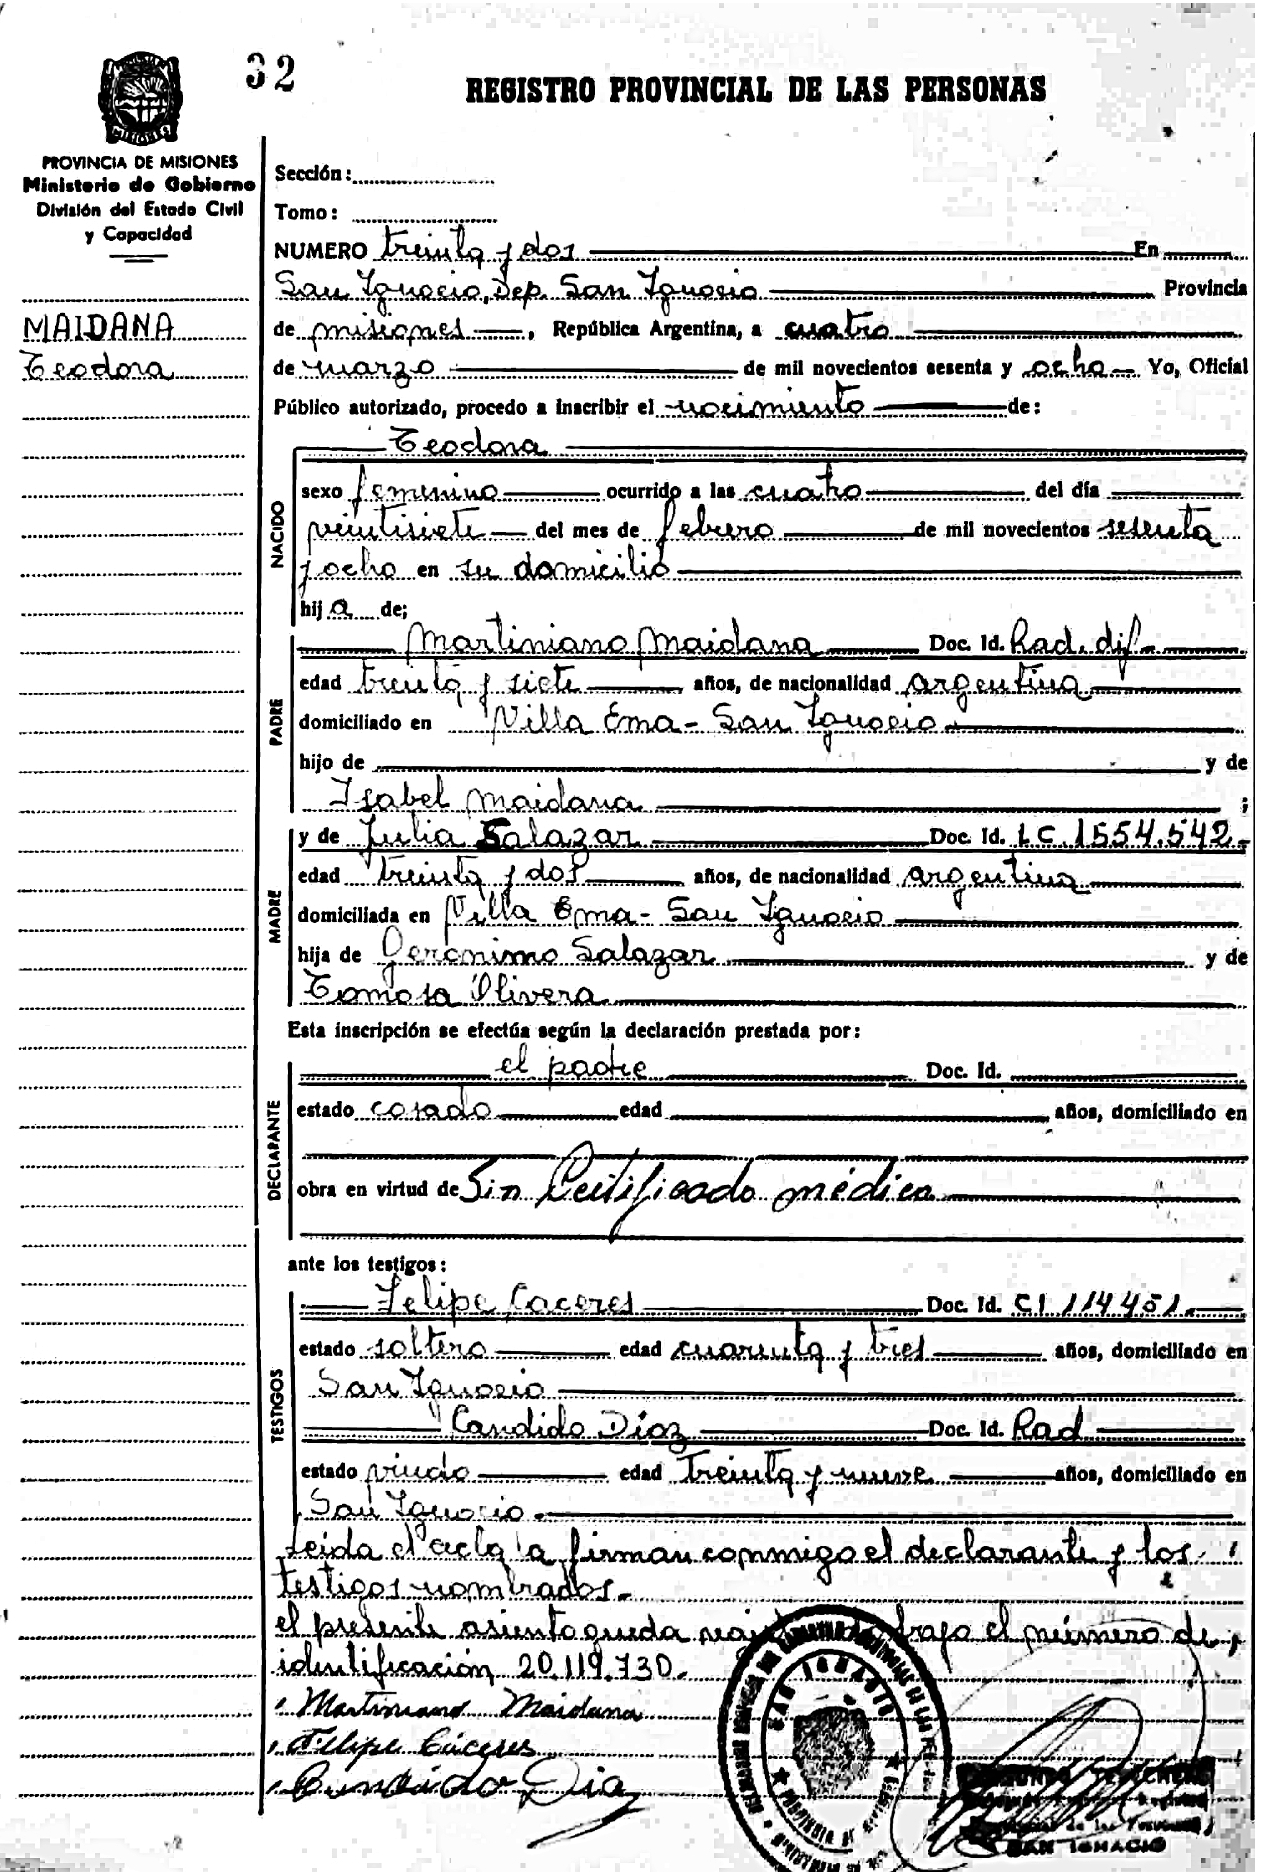 32
REGISTRO PROVINCIAL DE LAS PERSONAS
MISIONES
PROVINCIA DE MISIONES
Ministerio de Gobierno
División del Estado Civil
y Capacidad
MAIDANA
Teodora
Sección:
Tomo:
NUMERO treinta y dos En
San Ignacio, Dep. San Ignacio Provincia
de misiones, República Argentina, a cuatro
de marzo de mil novecientos sesenta y ocho Yo, Oficial
Público autorizado, procedo a inscribir el nacimiento de:
NACIDO
Teodora
sexo femenino ocurrido a las cuatro del día
veintisiete del mes de febrero de mil novecientos sesenta
y ocho en su domicilio
hija de;
PADRE
Martiniano Maidana Doc. Id. Rad. dif.
edad treinta y siete años, de nacionalidad argentina
domiciliado en Villa Ema - San Ignacio
hijo de y de
Isabel Maidana ;
MADRE
y de Julia Salazar Doc. Id. LC. 1554.542.-
edad treinta y dos años, de nacionalidad argentina
domiciliada en Villa Ema - San Ignacio
hija de Geronimo Salazar y de
Tomasa Olivera
Esta inscripción se efectúa según la declaración prestada por:
DECLARANTE
el padre Doc. Id.
estado casado edad años, domiciliado en
obra en virtud de Sin Certificado médico
ante los testigos:
TESTIGOS
Felipe Caceres Doc. Id. CI 114451.
estado soltero edad cuarenta y tres años, domiciliado en
San Ignacio
Candido Díaz Doc. Id. Rad
estado viudo edad treinta y nueve años, domiciliado en
San Ignacio.
Leida el acta la firman conmigo el declarante y los
testigos nombrados.-
el presente asiento queda bajo el número de
identificación 20.119.730.
Martiniano Maidana
Felipe Cáceres
Candido Dia
SAN IGNACIO
PROVINCIA DE MISIONES
SAN IGNACIO